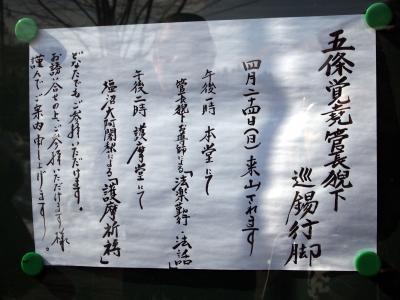 五條覚堯管長猊下
巡錫行脚
四月二十四日(日)来山されます
午後一時 本堂にて
管長猊下お導師による「法楽勤行・法話」
午後二時 護摩堂にて
塩沼大阿闍梨による「護摩祈祷」
どなたでもご参拝いただけます。
お誘い合せの上、ご参拝いただけます様
謹んでご案内申し上げます。